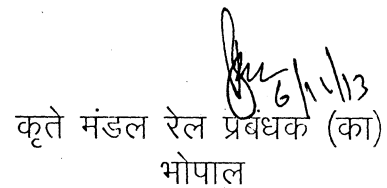 6/11/13
कृते मंडल रेल प्रबंधक (का)
भोपाल